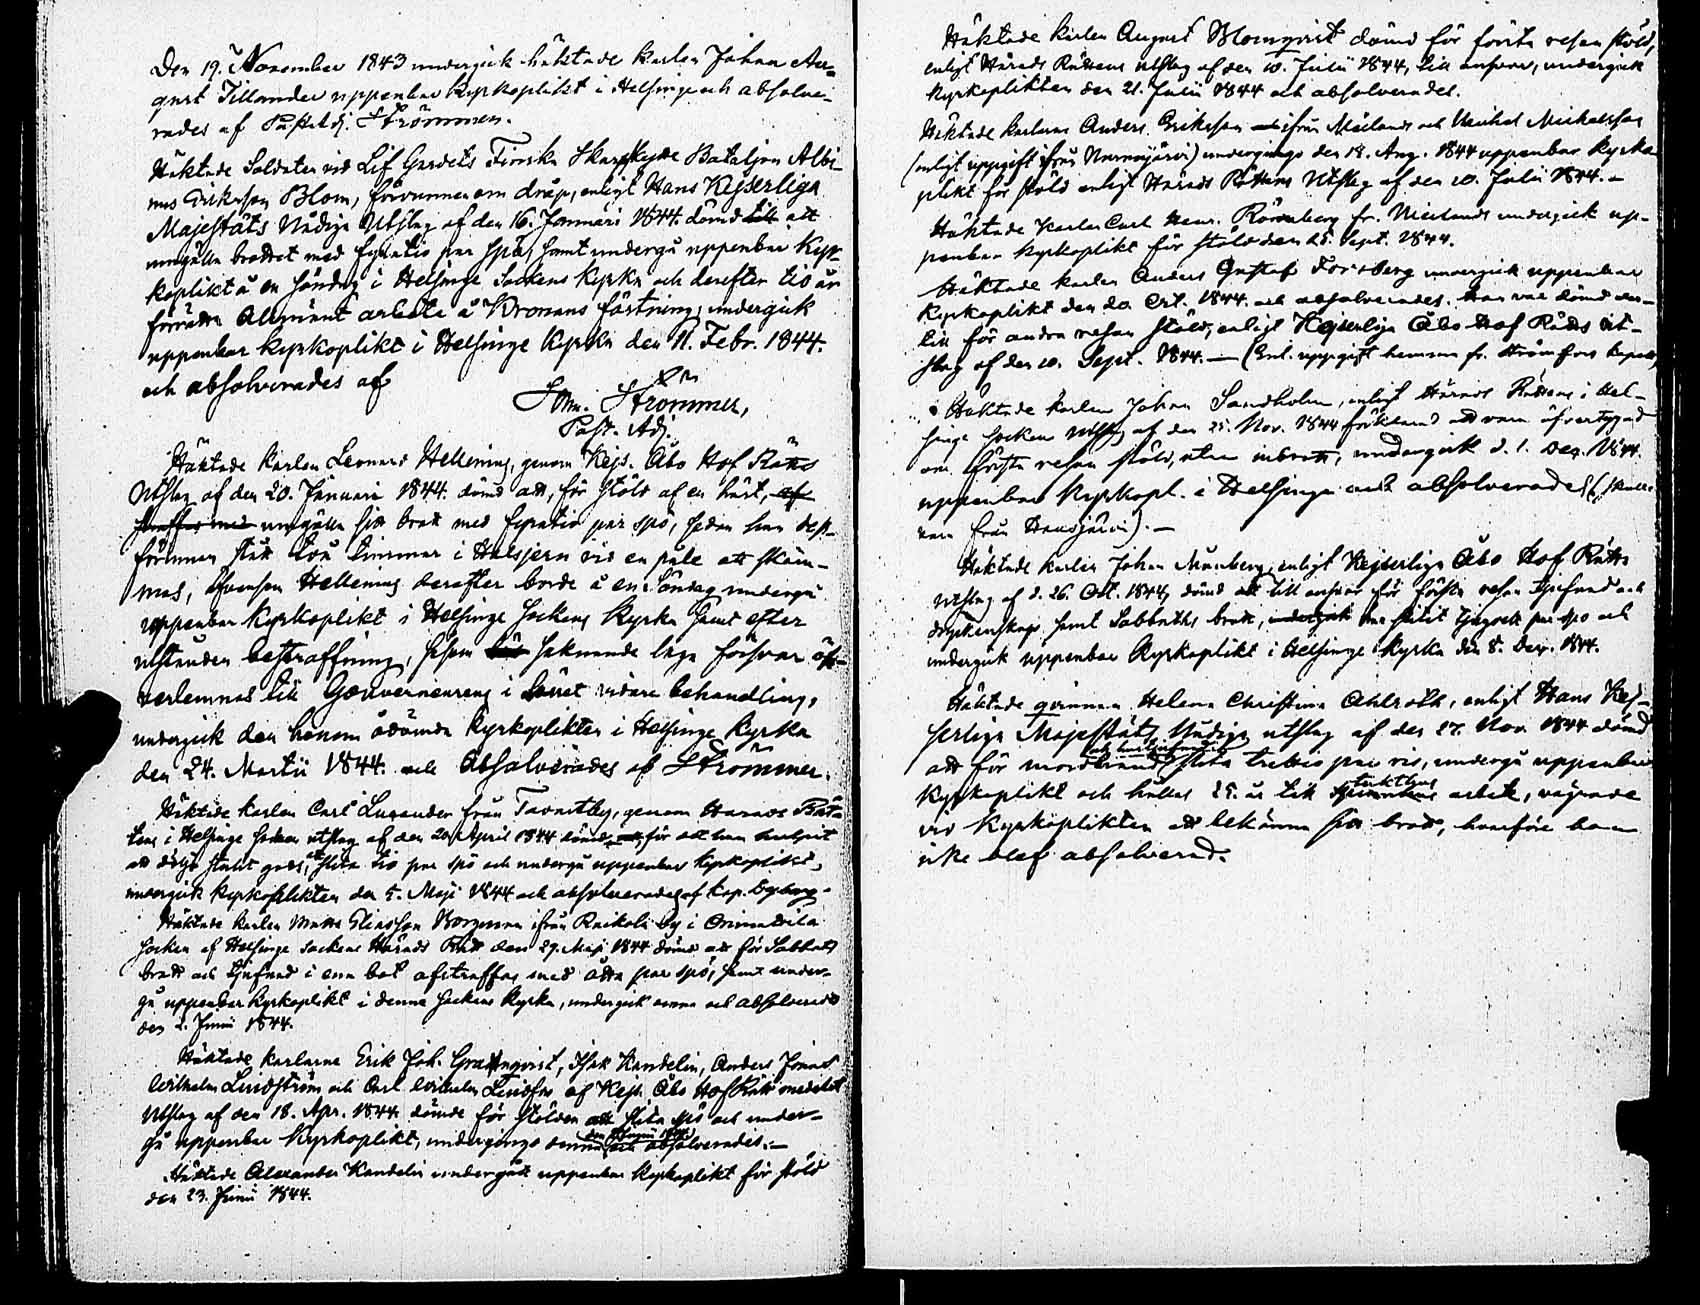 Den 19. November 1843 undergick häktade karlen Johan Au-
gust Tillander uppenbar kyrkoplikt i Helsinge och absolve-
rades af Past. Adj. Strömmer.
Häktade Soldaten vid Lif Gardets Finska Skarpskytte Bataljon Albi-
nus Eriksson Blom, förvunnen om dråp, enligt Hans Kejserliga
Majestäts Nådiga Utslag af den 16. Januari 1844. dömd till att
umgälla brottet med fyratio par spö, samt undergå uppenbar Kyr-
koplikt å en söndag i Helsinge Sockens Kyrka och derefter tio år
förrätta Allmänt arbete å Kronans fästning, undergick
uppenbar kyrkoplikt i Helsinge Kyrka den 11. Febr. 1844.
och absolverades af
Strömmer,
Past. Adj.
Häktade karlen Leonard Hellenius, genom Kejs. Åbo Hof Rätts
Utslag af den 20. Januari 1844. dömd att, för stöld af en häst, af
straffas med umgälla sitt brott med fyratio par spö, sedan han dess-
förinnan stått två timmar i Halsjern vid en påle att skäm-
mas, hvarefter Hellenius derefter borde å en Söndag undergå
uppenbar Kyrkoplikt i Helsinge Sockens Kyrka samt efter
utstånden bestraffning, såsom saknande laga försvar öf-
verlemnas till Gouverneurens i Länet vidare behandling,
undergick den honom ådömda kyrkoplikten i Helsinge Kyrka
den 24. Martii 1844. och Absolverades af Strömmer.
Häktade karlen Carl Lusander från Tavastby, genom Härads Rät-
tens i Helsinge Socken utslag af den 20 April 1844 dömd att för att han hulpit
att dölja stulit gods, slita tio par spö och undergå uppenbar kyrkoplikt,
undergick kyrkoplikten den 5. Maji 1844 och absolverades af kap. Dyberg.
Häktade karlen Matts Eliasson Borgman ifrån Raikola by i Orimattila
Socken af Helsinge sockens Härads Rätt den 29. Maji 1844 dömd att för Sabbats
brott och Tjufnad i ena bot afstraffas med åtta par spö, samt under-
gå uppenbar kyrkoplikt i denna Sockens kyrka, undergick denna och absolverades
den 2. Junii 1844.
Häktade karlarne Erik Joh. Granqvist, Isak Kandelin, Anders Jonas
Wilhelm Lindström och Carl Wilhelm Lindfors af Kejs. Åbo Hof Rätt medelst
Utslag af den 18. Apr. 1844. dömde för stölden att slita spö och under-
gå uppenbar Kyrkoplikt, undergingo denna och absolverades.—
Häktade Alexander Kandelin undergått uppenbar kyrkoplikt för stöld
den 23. Junii 1844.
Häktade karlen August Blomqvist dömd för första resan stöld,
enligt Härads Rättens utslag af den 10. Julii 1844, till ansvar, undergick
kyrkoplikten den 21. Julii 1844 och absolverades.
Häktade karlarne Anders Eriksson ifrån Mäilands och Michel Michelsson
(enligt uppgift från Nurmijärvi) undergingo den 18. Aug. 1844 uppenbar kyrko
plikt för stöld enligt Härads Rättens Utslag af den 10. Julii 1844.—
Häktade Karlen Carl Henr. Rönnberg fr. undergick up-
penbar kyrkoplikt för stöld den 25. Sept. 1844.
Häktade karlen Anders Gustaf Forsberg undergick uppenbar
kyrkoplikt den 20 Oct. 1844. och absolverades. Han var dömd der-
till för andra resan stöld, enligt Kejserliga Åbo Hof Rätts Ut-
slag af den 10. Sept. 1844.— (Enl. uppgift hemma fr. Strömfors kapell)
Häktade karlen Johan Sandholm, enligt Härads Rättens i Hel-
singe socken utslag af den 25. Nov. 1844 förklarad att vara öfvertygad
om första resan stöld, utan inbrott, undergick d. 1. Dec. 1844.
uppenbar kyrkopl. i Helsinge och absolverades (skulle
vara från Hausjärvi).—
Häktade karlen Johan Munberg, enligt Kejserliga Åbo Hof Rätts
utslag af d. 26. Oct. 1844, dömd att till ansvar för första resan Tjufnad och
dryckenskap samt Sabbaths brott, undergick har slitit tjugoett par spö och
undergick uppenbar Kyrkoplikt i Helsinge Kyrka den 8. Dec. 1844.
Häktade qvinnan Helena Christina Ahlroth, enligt Hans Kej-
serliga Majestäts Nådiga utslag af den 27. Nov. 1844 dömd
att för mordbrand slita trettio par ris, undergå uppenbar
Kyrkoplikt och hållas 25. år till tukthus arbete, vägrade
vid Kyrkoplikten att bekänna sitt brott, hvarföre hon
icke blef absolverad.